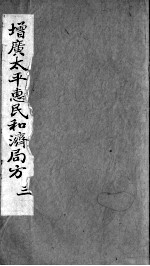 增廣太平惠民和濟局方 三